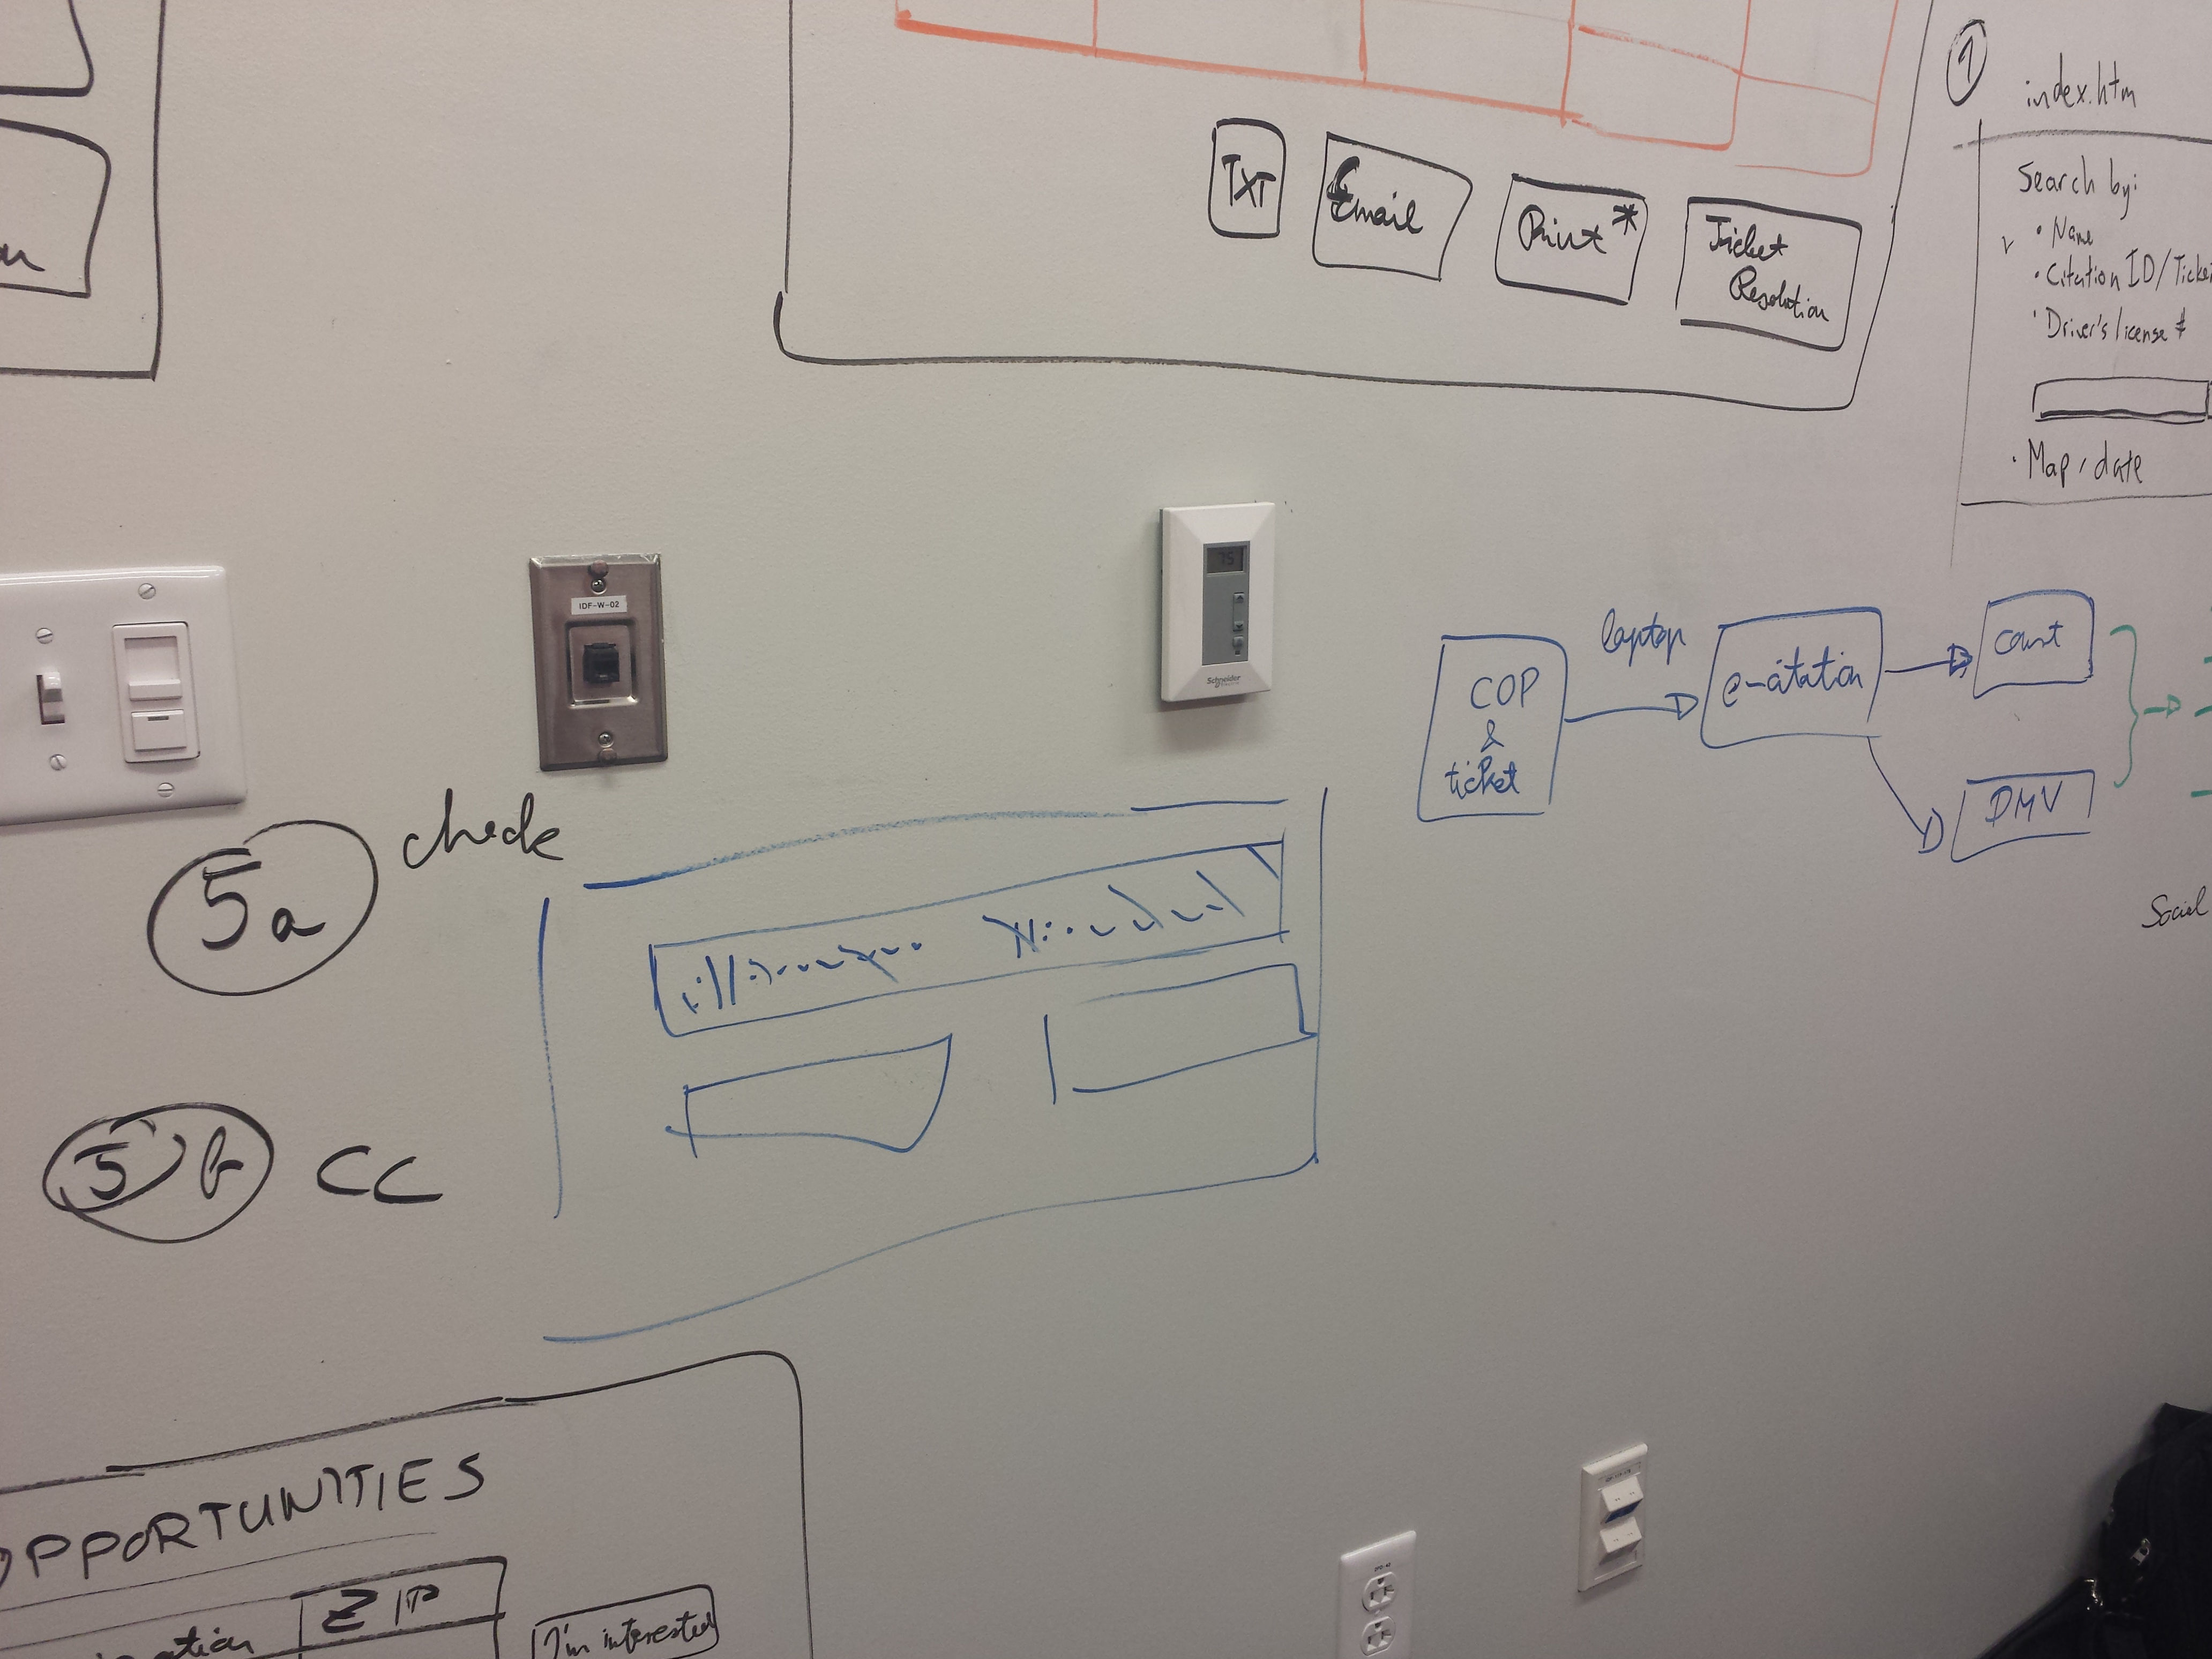 TXT
Email
Print *
Ticket
Resolution
1
index.htm
Search by:
• Name
• Citation ID/Ticket
• Driver's license #
• Map/date
IDF-W-02
75
Schneider
COP
&
ticket
laptop
e-citation
court
DMV
Social
5a
check
5b
CC
OPPORTUNITIES
ZIP
I'm interested